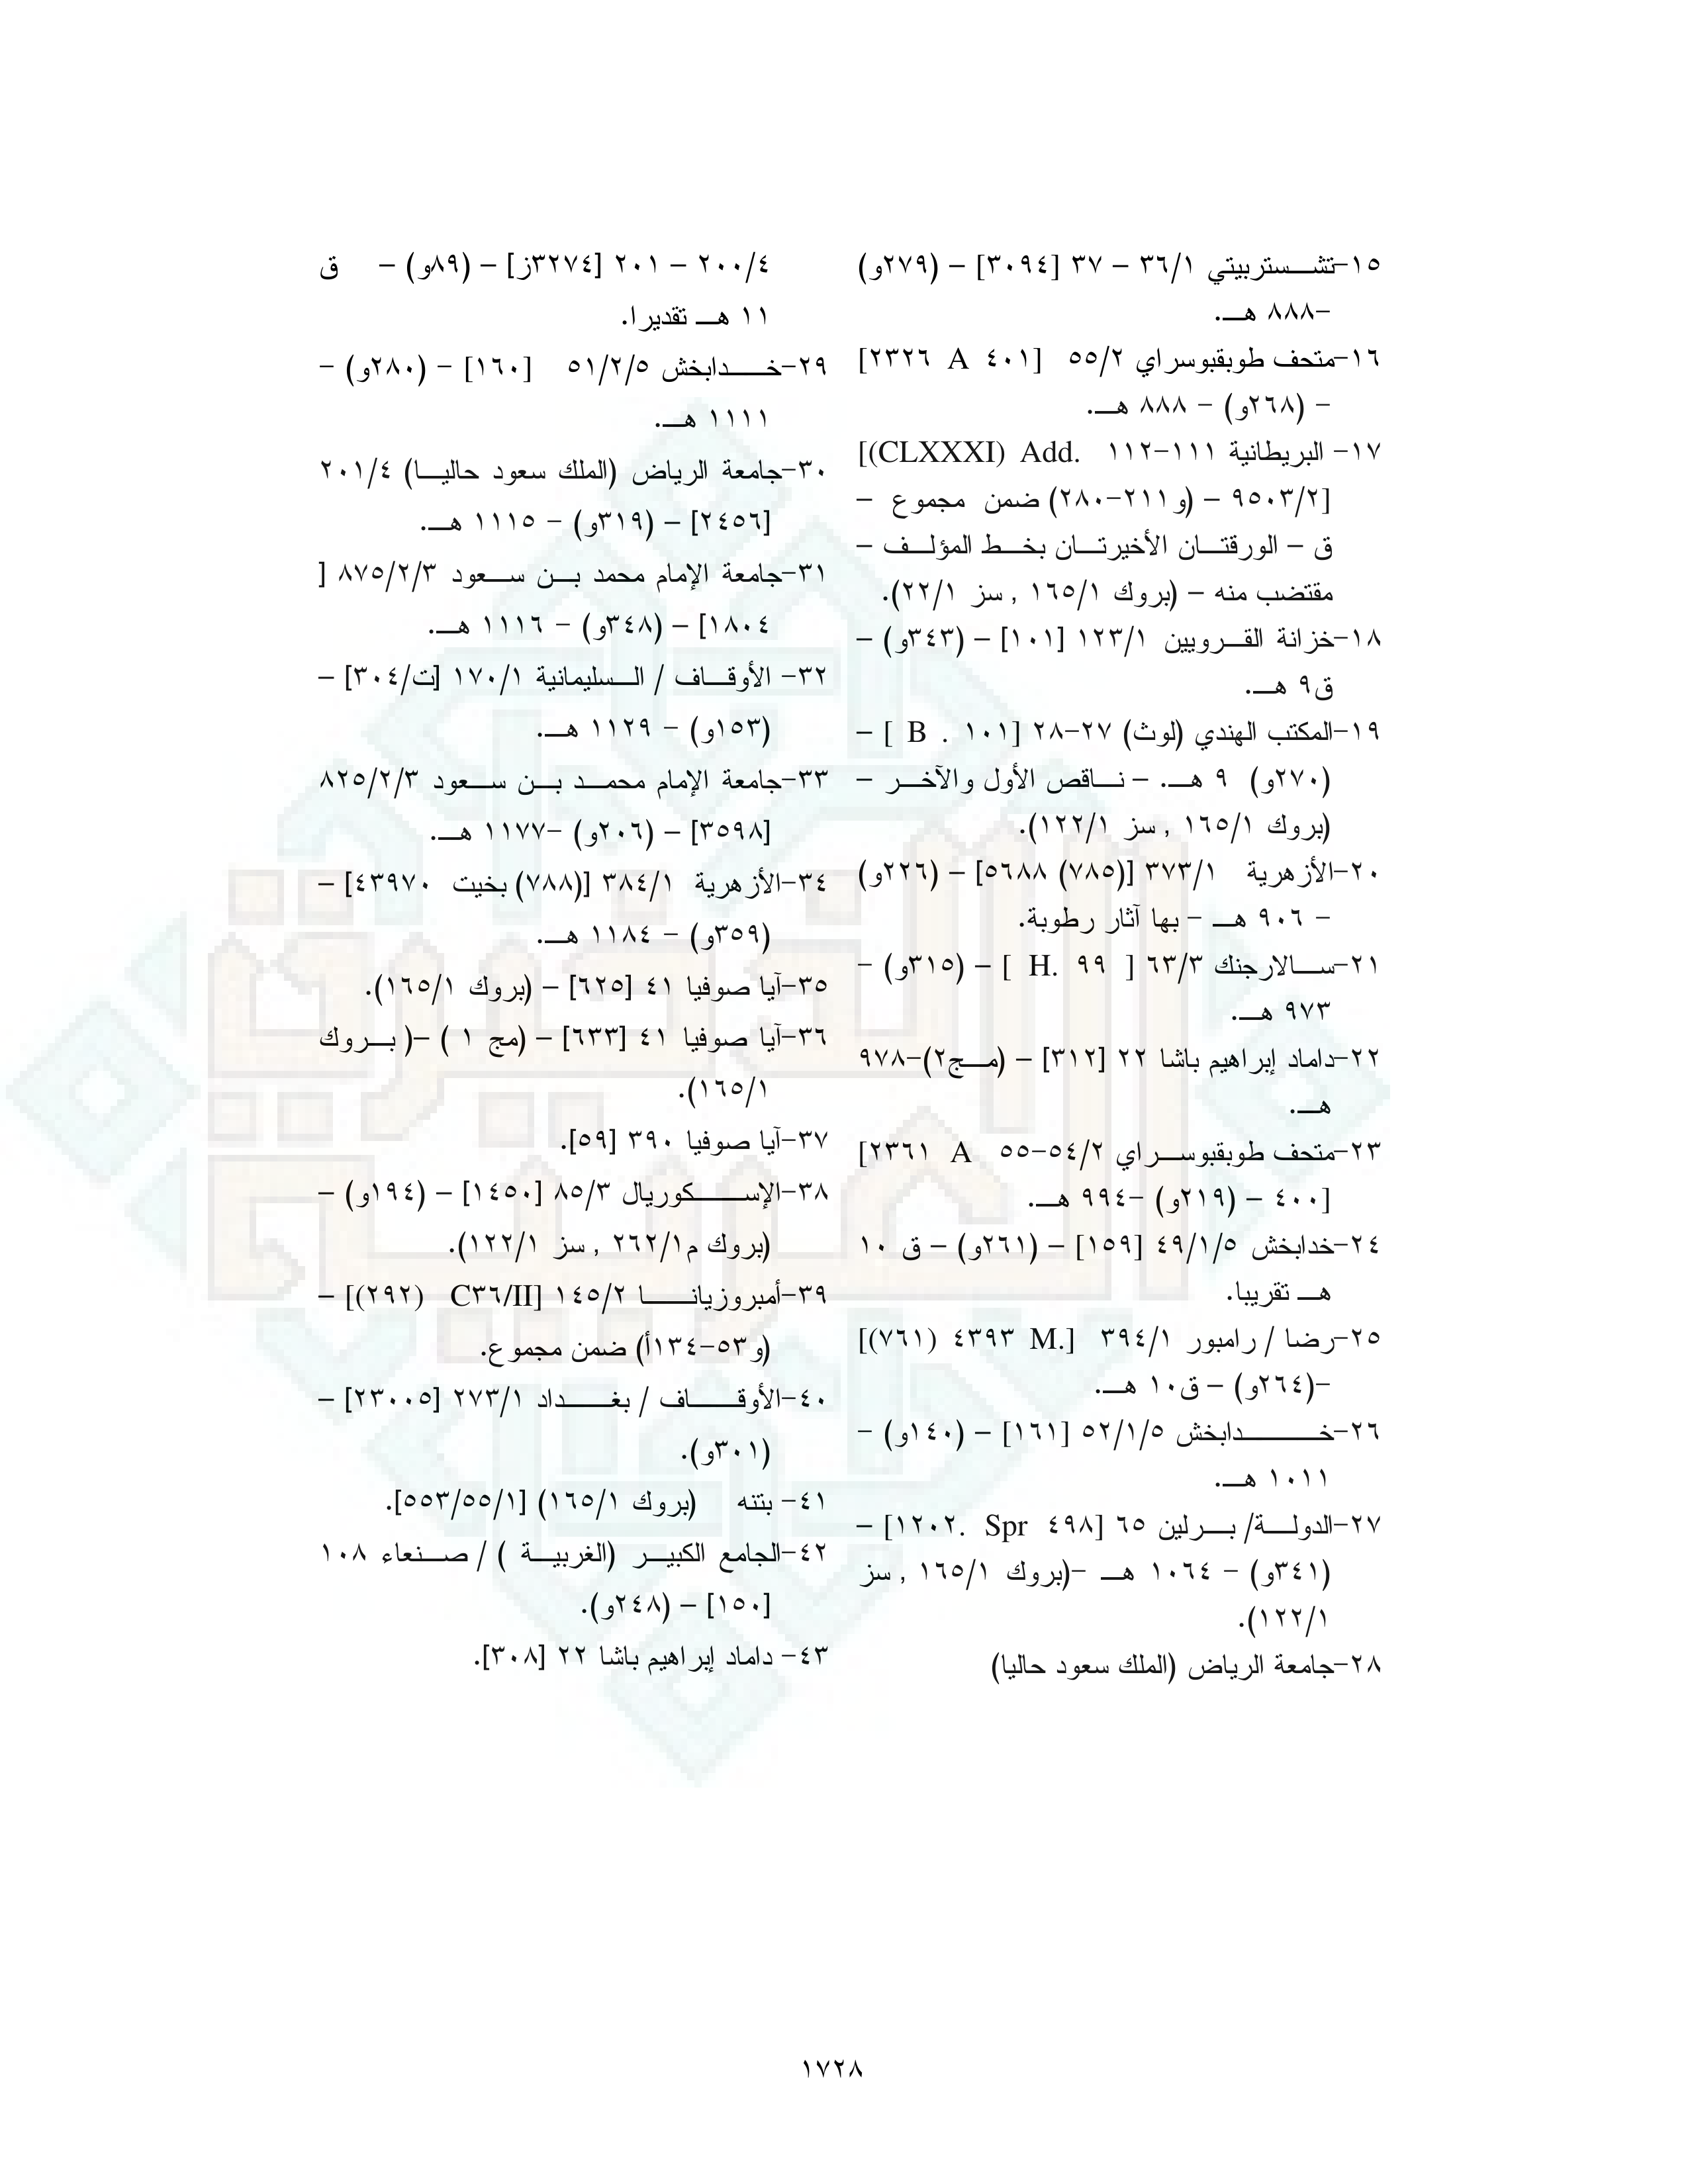 ١٥-تشستربيتي ٣٦/١ – ٣٧ [٣٠٩٤] – (٢٧٩و)
-٨٨٨ هـ.
١٦-متحف طوبقبوسراي ٥٥/٢ [٤٠١ A ٢٣٢٦]
– (٢٦٨و) – ٨٨٨ هـ.
١٧- البريطانية ١١١-١١٢ [(CLXXXI) Add.
٩٥٠٣/٢] – (و٢١١-٢٨٠) ضمن مجموع –
ق – الورقتان الأخيرتان بخط المؤلف –
مقتضب منه – (بروك ١٦٥/١ , سز ٢٢/١).
١٨-خزانة القرويين ١٢٣/١ [١٠١] – (٣٤٣و) –
ق٩ هـ.
١٩-المكتب الهندي (لوث) ٢٧-٢٨ [١٠١ . B ] –
(٢٧٠و) ٩ هـ. – ناقص الأول والآخر –
(بروك ١٦٥/١ , سز ١٢٢/١).
٢٠-الأزهرية ٣٧٣/١ [(٧٨٥) ٥٦٨٨] – (٢٢٦و)
– ٩٠٦ هـ – بها آثار رطوبة.
٢١-سالارجنك ٦٣/٣ [ ٩٩ .H ] – (٣١٥و) –
٩٧٣ هـ.
٢٢-داماد إبراهيم باشا ٢٢ [٣١٢] – (مج٢)-٩٧٨
هـ.
٢٣-متحف طوبقبوسراي ٥٤/٢-٥٥ [٢٣٦١ A
٤٠٠] – (٢١٩و) -٩٩٤ هـ.
٢٤-خدابخش ٤٩/١/٥ [١٥٩] – (٢٦١و) – ق ١٠
هـ تقريبا.
٢٥-رضا / رامبور ٣٩٤/١ [.M ٤٣٩٣ (٧٦١)]
-(٢٦٤و) – ق١٠ هـ.
٢٦-خدابخش ٥٢/١/٥ [١٦١] – (١٤٠و) –
١٠١١ هـ.
٢٧-الدولة/ برلين ٦٥ [٤٩٨ Spr .١٢٠٢] –
(٣٤١و) – ١٠٦٤ هـ -(بروك ١٦٥/١ , سز
١٢٢/١).
٢٨-جامعة الرياض (الملك سعود حاليا)
٢٠٠/٤ – ٢٠١ [٣٢٧٤ز] – (٨٩و) – ق
١١ هـ تقديرا.
٢٩-خدابخش ٥١/٢/٥ [١٦٠] – (٢٨٠و) –
١١١١ هـ.
٣٠-جامعة الرياض (الملك سعود حاليا) ٢٠١/٤
[٢٤٥٦] – (٣١٩و) – ١١١٥ هـ.
٣١-جامعة الإمام محمد بن سعود ٨٧٥/٢/٣ [
١٨٠٤] – (٣٤٨و) – ١١١٦ هـ.
٣٢- الأوقاف / السليمانية ١٧٠/١ [ت/٣٠٤] –
(١٥٣و) – ١١٢٩ هـ.
٣٣-جامعة الإمام محمد بن سعود ٨٢٥/٢/٣
[٣٥٩٨] – (٢٠٦و) -١١٧٧ هـ.
٣٤-الأزهرية ٣٨٤/١ [(٧٨٨) بخيت ٤٣٩٧٠] –
(٣٥٩و) – ١١٨٤ هـ.
٣٥-آيا صوفيا ٤١ [٦٢٥] – (بروك ١٦٥/١).
٣٦-آيا صوفيا ٤١ [٦٣٣] – (مج ١ ) -( بروك
١٦٥/١).
٣٧-آيا صوفيا ٣٩٠ [٥٩].
٣٨-الإسكوريال ٨٥/٣ [١٤٥٠] – (١٩٤و) –
(بروك م٢٦٢/١ , سز ١٢٢/١).
٣٩-أمبروزيانا ١٤٥/٢ [C٣٦/II (٢٩٢)] –
(و٥٣-١٣٤أ) ضمن مجموع.
٤٠-الأوقاف / بغداد ٢٧٣/١ [٢٣٠٠٥] –
(٣٠١و).
٤١- بتنه (بروك ١٦٥/١) [٥٥٣/٥٥/١].
٤٢-الجامع الكبير (الغربية ) / صنعاء ١٠٨
[١٥٠] – (٢٤٨و).
٤٣- داماد إبراهيم باشا ٢٢ [٣٠٨].
١٧٢٨